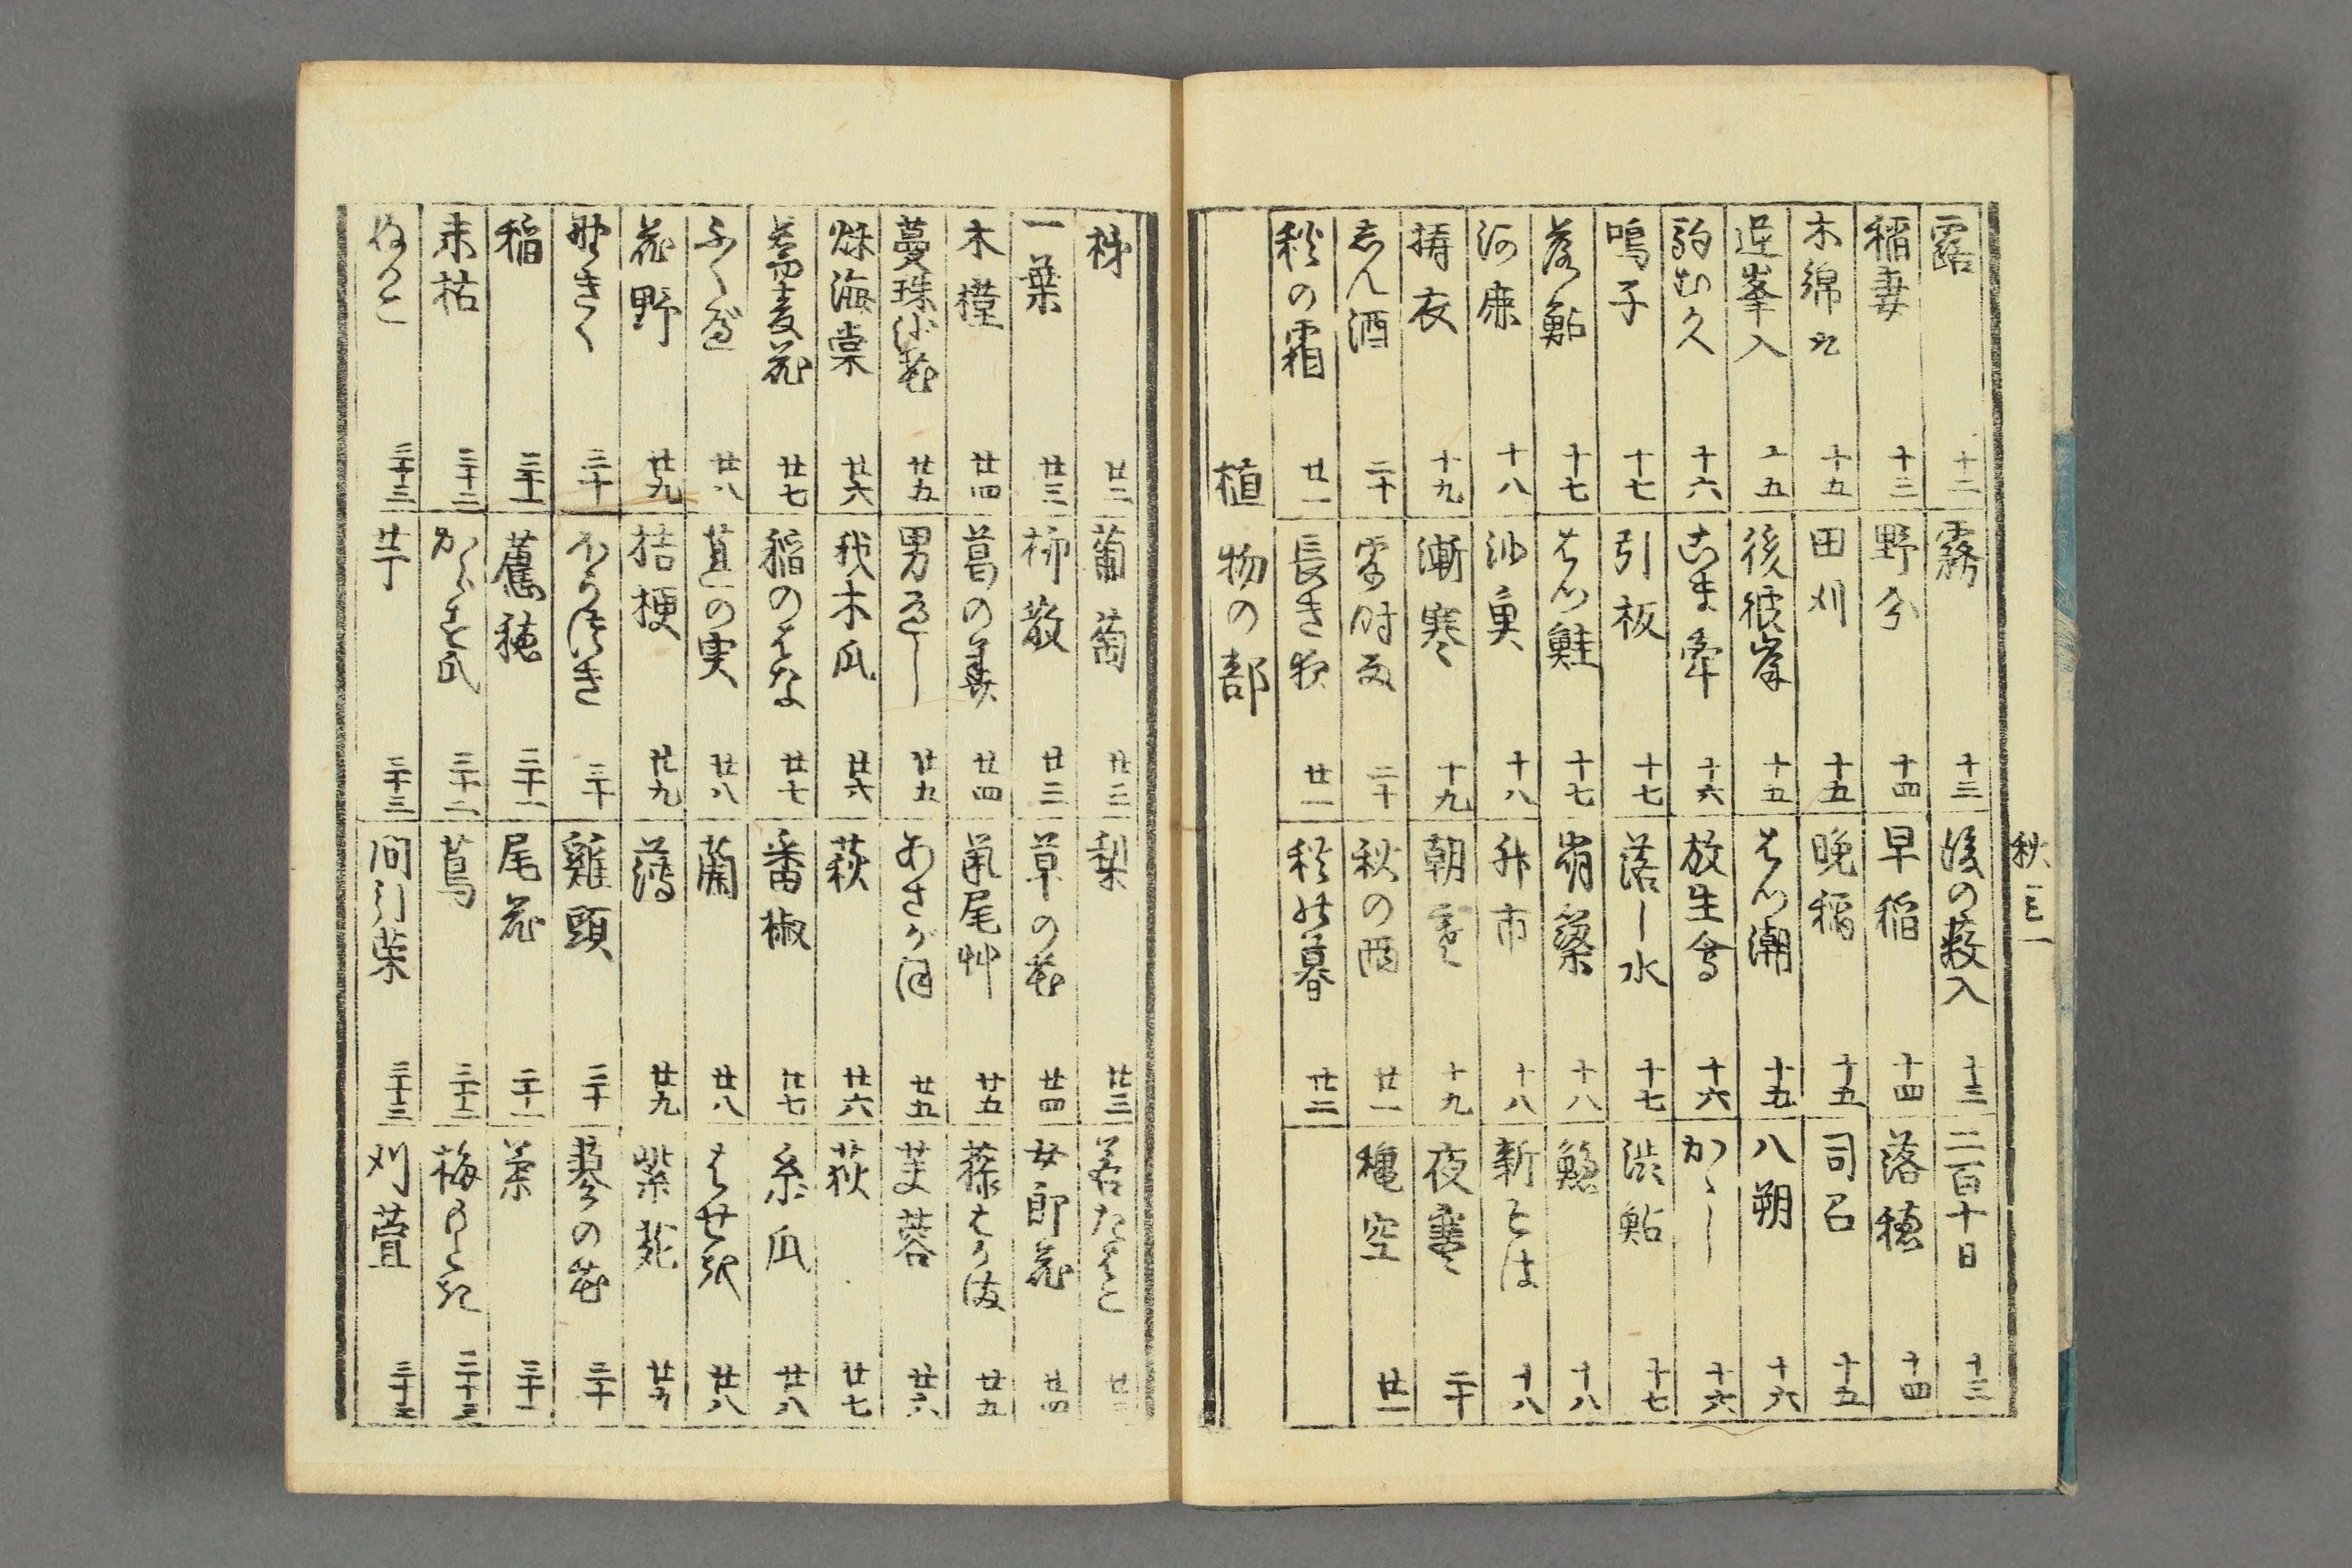 秋ノ一
露 十二 霧 十三 後の薮入 十三 二百十日 十三
稲妻 十三 野分 十四 早稲 十四 落穂 十四
木綿 十五 田刈 十五 晩稲 十五 司召 十五
逆峯入 十五 後彼岸 十五 はつ潮 十五 八朔 十六
駒むかへ 十六 こま牽 十六 放生会 十六 かゝし 十六
鳴子 十七 引板 十七 落し水 十七 渋鮎 十七
落鮎 十七 はつ鮭 十七 崩簗 十八 十八
河鹿 十八 沙魚 十八 升市 十八 新そは 十八
擣衣 十九 漸寒 十九 朝寒 十九 夜寒 二十
志ん酒 二十 露時雨 二十 秋の雨 廿一 穐空 廿一
秋の霜 廿一 長き夜 廿一 秋の暮 廿二
植物の部
廿二 葡萄 廿三 梨 廿三 若たはこ
一葉 廿三 柳散 廿三 草の花 廿四 女郎花 廿四
木槿 廿四 葛の花 廿四 鼠尾艸 廿五 藤はかま 廿五
蔓珠沙花 廿五 男へし 廿五 あさかほ 廿五 芙蓉 廿六
秌海棠 廿六 我木瓜 廿六 萩 廿六 荻 廿七
蕎麦花 廿七 稲のはな 廿七 番椒 廿七 糸瓜 廿八
ふくべ 廿八 廿八 蘭 廿八 はせを 廿八
花野 廿九 桔梗 廿九 薄 廿九 紫苑 廿九
野きく 三十 ほうつき 三十 雞頭 三十 蓼の花 三十
稲 三十一 三十一 尾花 三十一 三十一
末枯 三十二 からす瓜 三十二 蔦 三十二 梅もとき 三十三
ぬかこ 三十三 芋 三十三 間引菜 三十三 刈萱 三十三